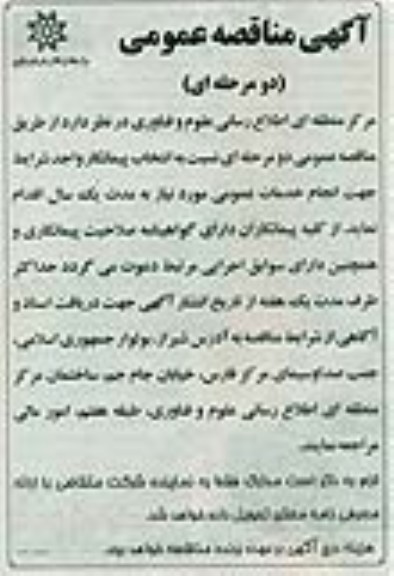 آگهی مناقصه عمومی
(دو مرحله ای)
مرکز منطقه ای اطلاع رسانی علوم و فناوری در نظر دارد از طریق
مناقصه عمومی دو مرحله ای نسبت به انتخاب پیمانکار واجد شرایط
جهت انجام خدمات عمومی مورد نیاز به مدت یک سال اقدام
نماید. از کلیه پیمانکاران دارای گواهینامه صلاحیت پیمانکاری و
همچنین دارای سوابق اجرایی مرتبط دعوت می گردد حداکثر
ظرف مدت یک هفته از تاریخ انتشار آگهی جهت دریافت اسناد و
آگاهی از شرایط مناقصه به آدرس شیراز، بولوار جمهوری اسلامی،
جنب صداوسیمای مرکز فارس، خیابان جام جم، ساختمان مرکز
منطقه ای اطلاع رسانی علوم و فناوری، طبقه هفتم، امور مالی
مراجعه نمایند.
لازم به ذکر است مدارک فقط به نماینده شرکت متقاضی با ارائه
معرفی نامه معتبر تحویل داده خواهد شد.
هزینه درج آگهی بر عهده برنده مناقصه خواهد بود.